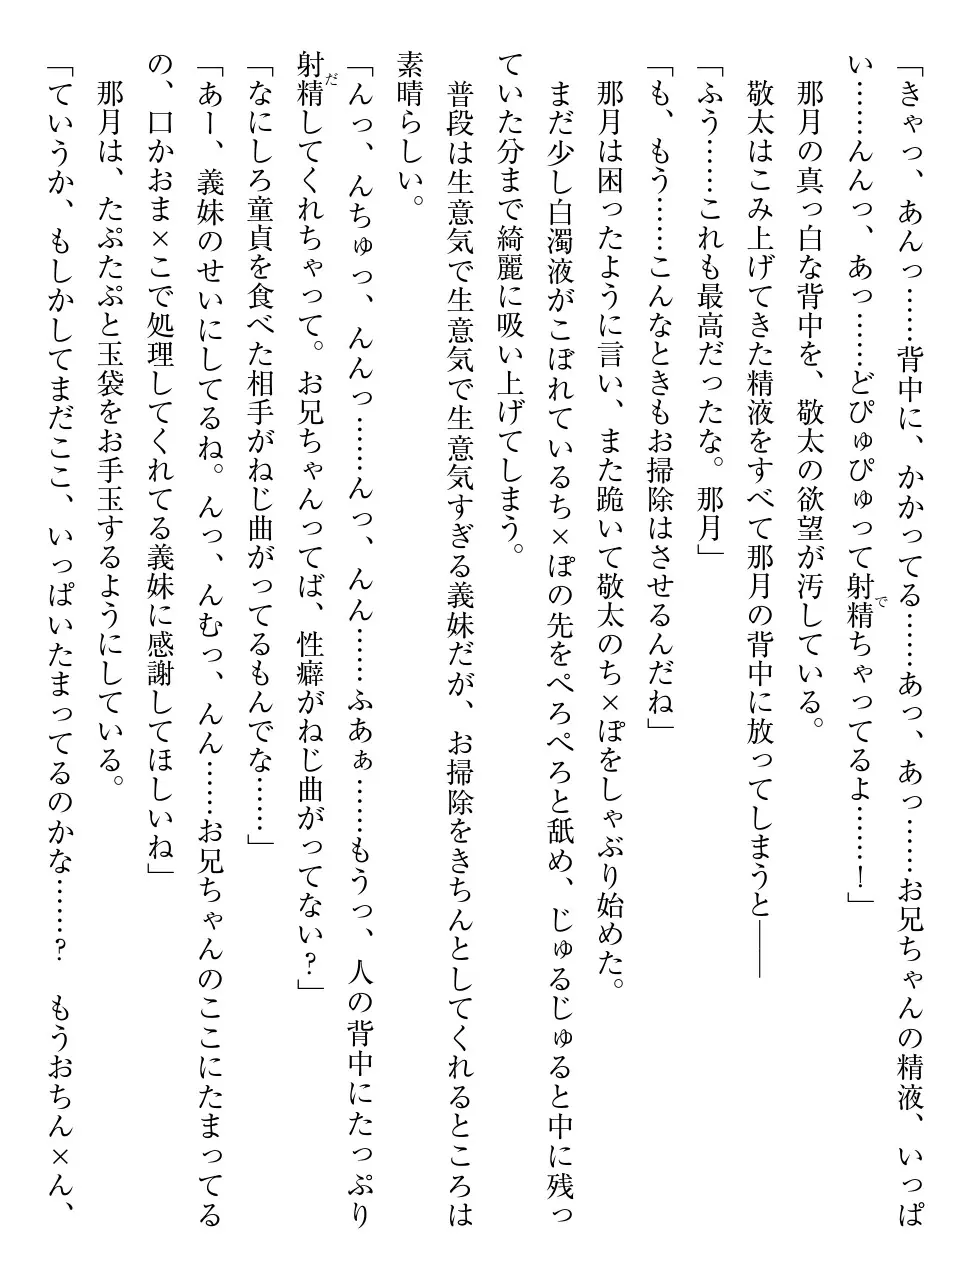 「きゃっ、あんっ……背中に、かかってる……あっ、あっ……お兄ちゃんの精液、いっぱ
い……んんっ、あっ……どぴゅぴゅって射精ちゃってるよ……！」
那月の真っ白な背中を、敬太の欲望が汚している。
敬太はこみ上げてきた精液をすべて那月の背中に放ってしまうと――
「ふう……これも最高だったな。那月」
「も、もう……こんなときもお掃除はさせるんだね」
那月は困ったように言い、また跪いて敬太のち×ぽをしゃぶり始めた。
まだ少し白濁液がこぼれているち×ぽの先をぺろぺろと舐め、じゅるじゅると中に残っ
ていた分まで綺麗に吸い上げてしまう。
普段は生意気で生意気で生意気すぎる義妹だが、お掃除をきちんとしてくれるところは
素晴らしい。
「んっ、んちゅっ、んんっ……んっ、んん……ふあぁ……もうっ、人の背中にたっぷり
射精してくれちゃって。お兄ちゃんってば、性癖がねじ曲がってない？」
「なにしろ童貞を食べた相手がねじ曲がってるもんでな……」
「あー、義妹のせいにしてるね。んっ、んむっ、んん……お兄ちゃんのここにたまってる
の、口かおま×こで処理してくれてる義妹に感謝してほしいね」
那月は、たぷたぷと玉袋をお手玉するようにしている。
「ていうか、もしかしてまだここ、いっぱいたまってるのかな……？　もうおちん×ん、